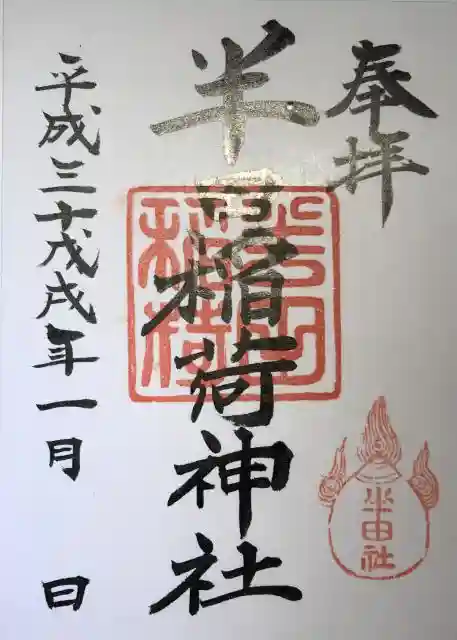 奉拝
半田稲荷神社
平成三十戊戌年一月 日
半田
稲荷
半田社